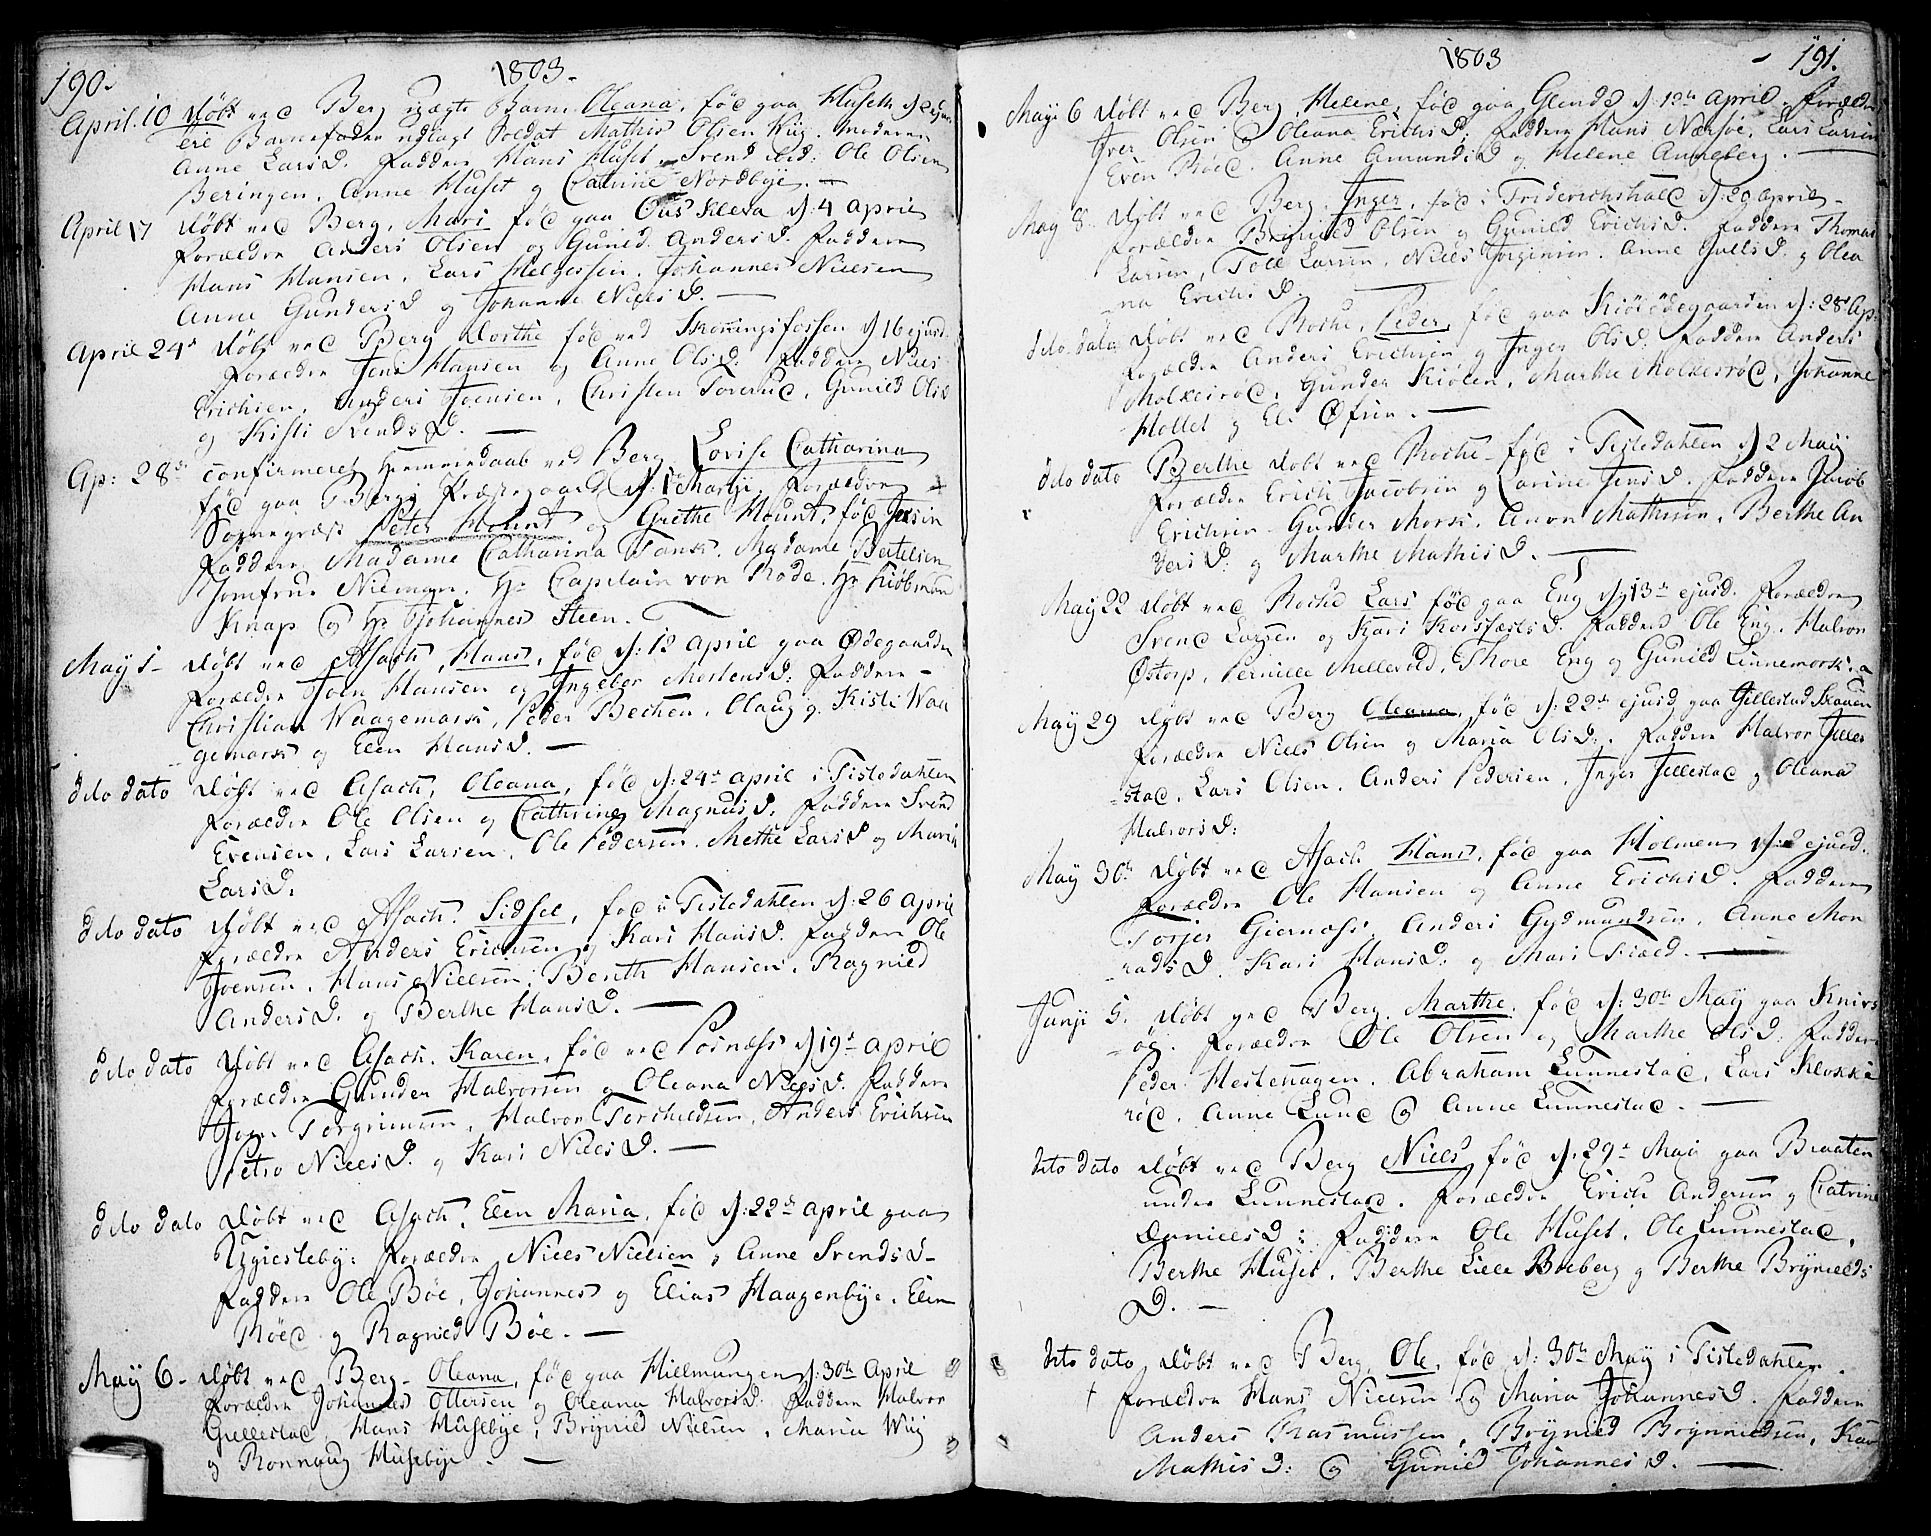 190.
1803.
April. 10 døbt ved Berg uægte Barn Oleana, fød paa Huseth d: 2 ejus
Barnefader udlagt Soldat Mathis Olsen Wiig. moderen
Anne LarsD. Faddere Hans Huset, Svend ibid: Ole Olsen
Beringen, Anne Huset og Catrine Nordbye. —
April 17 døbt ved Berg, Mari fød paa Ous Kleva d: 4 April
Forældre Anders Olsen og Gunild AndersD. Faddere
Hans Hansen, Lars Helgessen, Johannes Nielsen
Anne GundersD og Johanne NielsD. —
April 24 døbt ved Berg Dorthe fød ved Skonningsfossen d 16 ejusd.
Forældre Jens Hansen og Anne OlsD. Faddere Niels
Erichsen, Anders Joensen, Christen Torerud, Gunild Ols
og Kisti SvendsD. —
Ap: 28 confirmeret Hiemmedaab ved Berg Lovise Catharina
fød paa Bergs Præstegaard d. 1 Martji. Forældre
Sognepræst Peter Hount og Grethe Hount, fød
Faddere Madame Catharina Tank, Madame Bertelsen
Jomfrue Nieman, Hr Capitain von Rode, Hr Kiöbmand
Knap og Hr Johannes Steen.
May 1 døbt ved Asach, Hans, fød d: 12 April paa Ødegaarden
Forældre Joen Hansen og Ingebor MortensD: Faddere
Christian Waagemark, Peder Bechen, Olaug og Kisti Waa
gemark og Elen HansD. —
dito dato døbt ved Asach, Oleana, fød d: 24 April i Tistedahlen
Forældre Ole Olsen og Cathrine MagnusD. Faddere Svend
Evensen, Lars Larsen, Ole Pedersen, Methe LarsD og Maria
LarsD.
dito dato døbt ved Asach. Sidsel, fød i Tistedahlen d: 26 April
Forældre Anders Erichsen og Kari HansD. Faddere Ole
Joensen, Hans Nielsen, Benth Hansen, Ragnild
AndersD. og Berthe HansD. —
dito dato døbt ved Asach. Karen, fød ved Posnæss d 19 April
Forældre Gunder Halvorsen og Oleana NielsD. Faddere
Torgrimsen, Halvor Torchildsen, Anders Erichsen
Petro NielsD. og Kari NielsD. —
dito dato døbt ved Asach, Elen Maria, fød d: 22 April paa
Forældre Niels Nielsen og Anne SvendsD
Faddere Ole Bøe, Johannes og Elias Haagenbye, Elen
Röed og Ragnild Bøe. —
May 6 døbt ved Berg Oleana, fød paa Hillmungen d: 30 April
Forældre Johannes Ottersen og Oleana HalvorsD. Faddere Halvor
Gillestad, Hans Husebye, Brynild Nielsen, Maria Wiig
og Ronnaug Husebye. —
1803
191.
May 6 døbt ved Berg, Helene, fød paa Glende d: 12 April. Forældre
Iver Olsen og Oleana ErichsD. Faddere Hans Næssøe, Lars Larsen
Even Röed, Anne AmundsD og Helene Anneberg. —
May 8. døbt ved Berg. Inger, fød i Friderichshald d: 20 April
Forældre Brynild Olsen og Gunild ErichsD. Faddere Thomas
Larsen, Toll Larsen, Niels Jörginsen, Anne GullsD. og Olea
na ErichsD. —
dito. dato. døbt ved Rocke, Peder, fød paa Kiöiödegaarden d: 28 Ap:
Forældre Anders Erichsen og Inger OlsD. Faddere Anders
Molkesröd, Gunder Kiölen, Marthe Molkesröd, Johanne
Hollet og Øfsen. —
dito dato Berthe døbt ved Rocke, fød i Tistedahlen d 2 May
Forældre Erich Jacobsen og Carine JensD. Faddere Jacob
Erichsen Gunder Mork, Aron Mathisen, Berthe An
dersD: og Marthe MathisD. —
May 22 døbt ved Rocke Lars fød paa Eng d: 13 ejusd. Forældre
Svend Larsen og Kari KorsfæstsD. Faddere Ole Eng, Halvor
Østorp, Pernille Melleröd, Thore Eng og Gunild Linnemark.
May 29 døbt ved Berg Oleana, fød d: 22 ejusd paa Gillestad Skauen
Forældre Niels Olsen og Maria OlsD. Faddere Halvor Jilles
stad, Lars Olsen, Anders Pedersen, Inger Jillestad og Oleana
HalvorsD:
May 30 døbt ved Asach Hans, fød paa Holmen d: 2 ejusd.
Forældre Ole Hansen og Anne ErichsD. Faddere
Torjer Giernæss, Anders Gudmundsen, Anne Mon
radsD. Kari HansD. og Mari Field. —
Junji 5. døbt ved Berg. Marthe, fød d: 30 May paa Knivs
öe. Forældre Ole Olsen og Marthe OlsD: Faddere
Peder Hestehagen, Abraham Lunnestad, Lars Klokke
röd, Anne Lund og Anne Lunnestad. —
dito dato døbt ved Berg Niels, fød d: 29 May paa Braaten
under Lunnestad. Forældre Erich Andersen og Catrine
DanielsD: Faddere Ole Huset, Ole Lunnestad,
Berthe Huset, Berthe Lille Boeberg og Berthe Brynilds
D. —
dito dato døbt ved Berg, Ole, fød d: 30 May i Tistedahlen
† Forældre Hans Nielsen og Maria JohannesD. Faddere
Anders Rasmussen, Brynild Brynnildsen, Kari
MathisD: og Gunild JohannesD. —